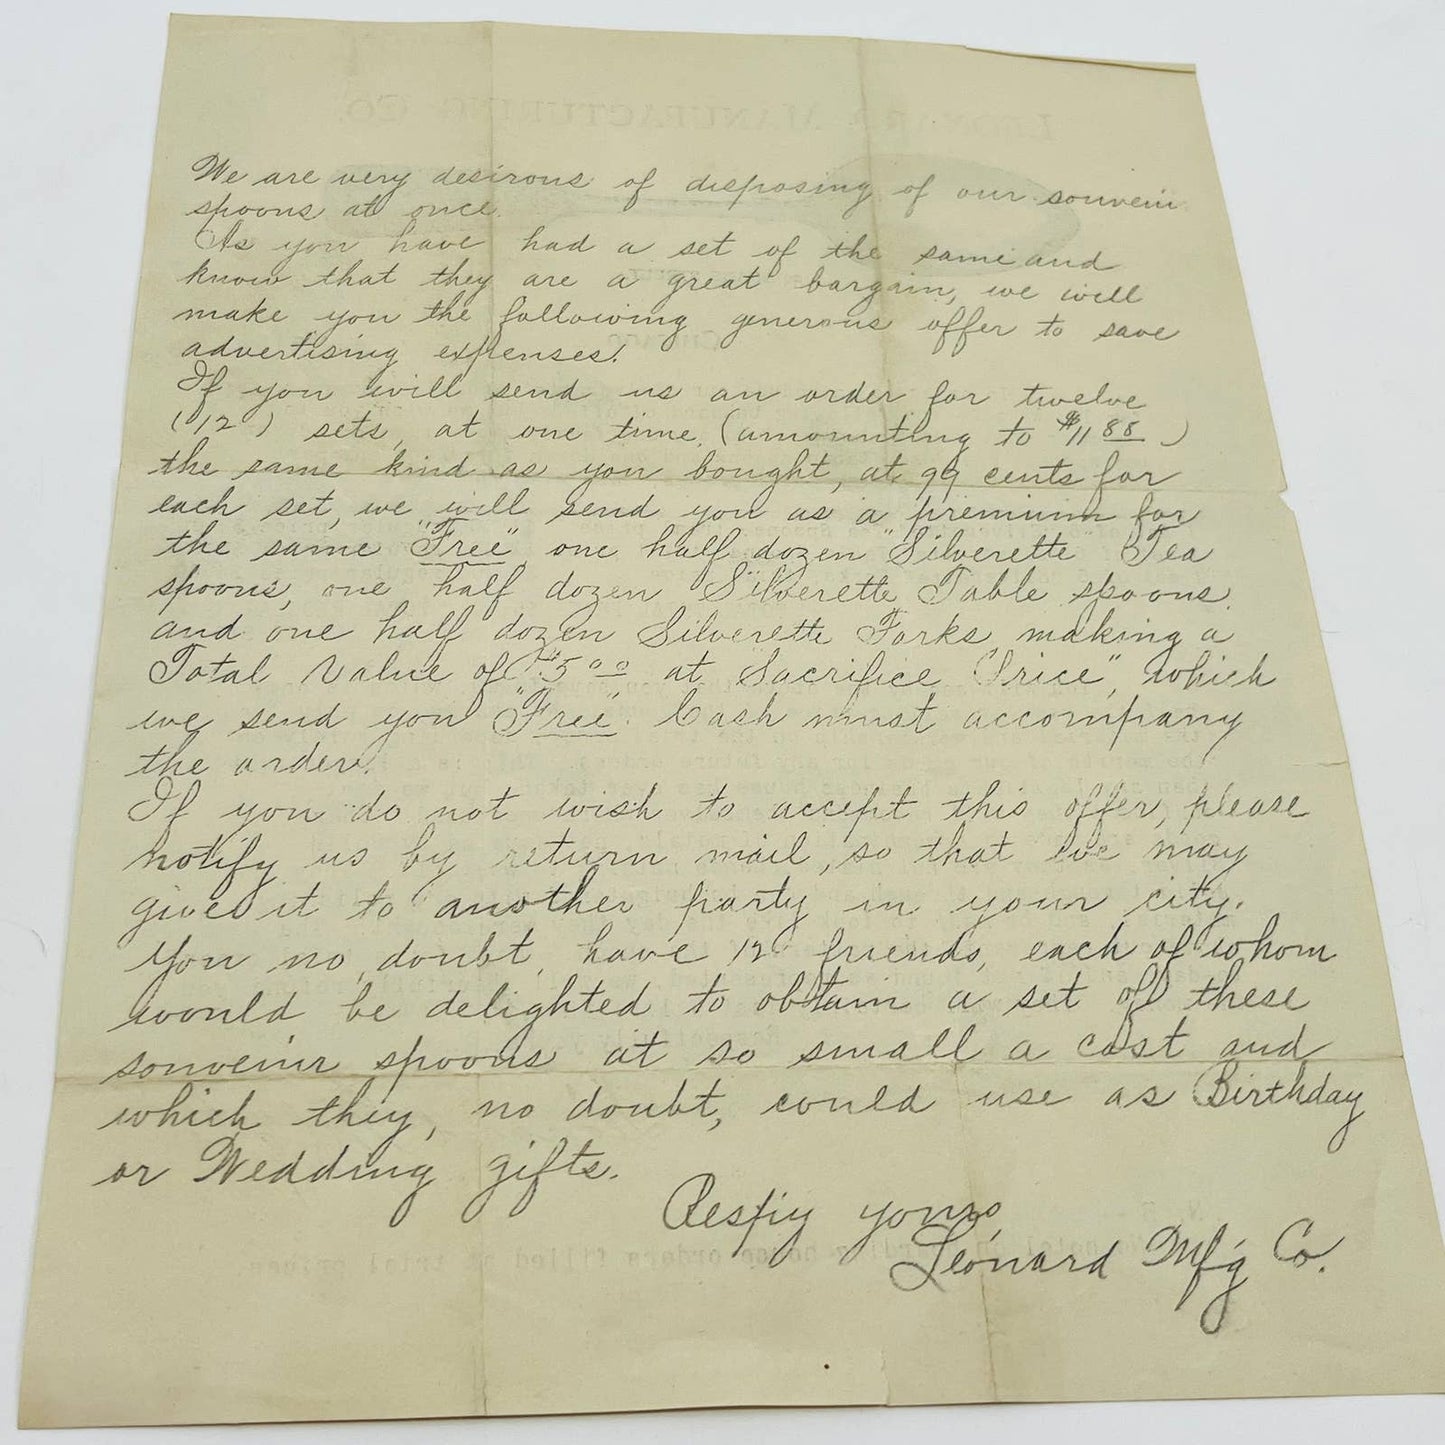 We are very desirous of disposing of our souvenir
spoons at once.
As you have had a set of the same and
know that they are a great bargain, we will
make you the following generous offer to save
advertising expenses.
If you will send us an order for twelve
(12) sets, at one time, (amounting to $11 88)
the same kind as you bought, at 99 cents for
each set, we will send you as a premium for
the same "Free" one half dozen "Silverette" Tea
spoons, one half dozen "Silverette Table spoons
and one half dozen Silverette Forks, making a
Total Value of $5 00 at Sacrifice Price", which
we send you "Free". Cash must accompany
the order.
If you do not wish to accept this offer, please
notify us by return mail, so that we may
give it to another party in your city.
You no doubt, have 12 friends, each of whom
would be delighted to obtain a set of these
souvenir spoons at so small a cost and
which they, no doubt, could use as Birthday
or Wedding gifts.
Respfy yours,
Leonard Mf'g Co.